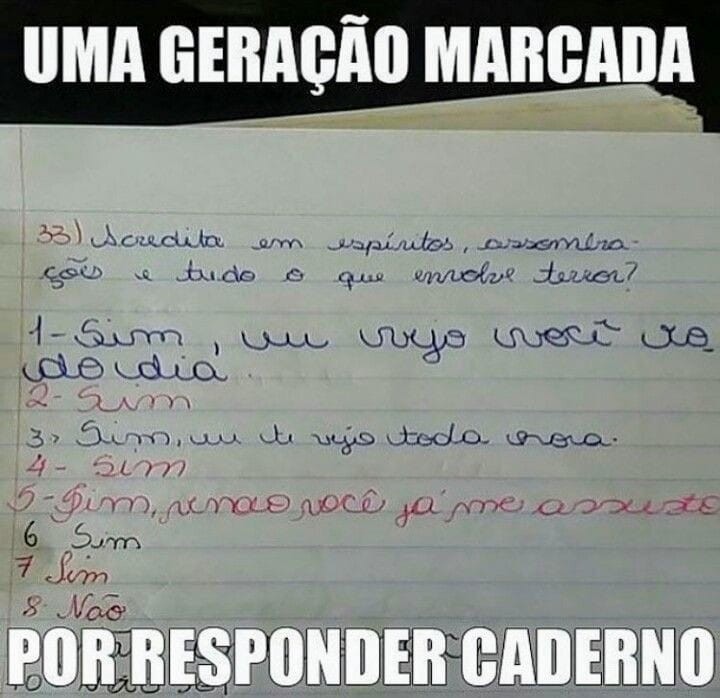 UMA GERAÇÃO MARCADA
33) Acredita em espíritos, assombra-
ções e tudo o que envolve terror?
1- Sim, eu vejo você to
do dia.
2- Sim
3, Sim, eu te vejo toda hora.
4- Sim
5- Sim, você já me assusta
6 Sim
7 Sim
8. Não
POR RESPONDER CADERNO
10